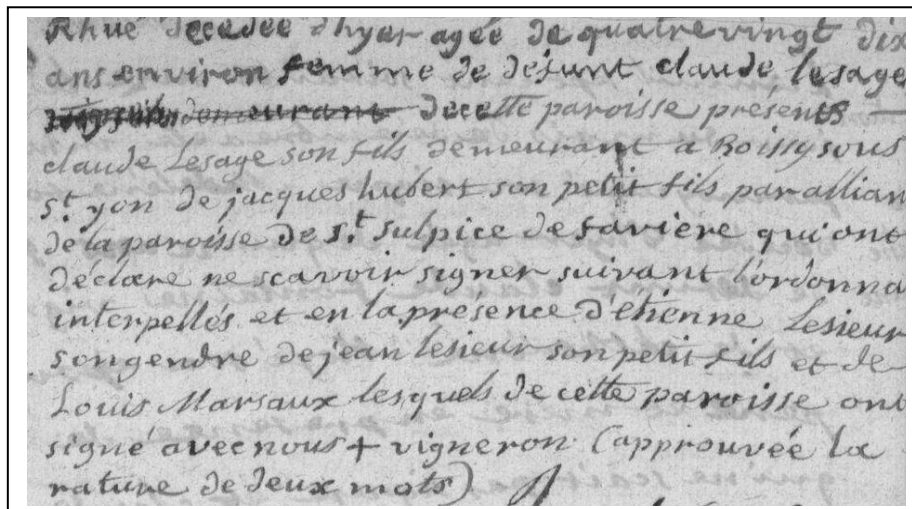 Rhué decedée d'hyer agée de quatre vingt dix
ans environ femme de défunt claude lesage
demeurant decette paroisse présents
claude Lesage son fils demeurant a Roissy sous
st. yon de jacques hubert son petit fils par allian
de la paroisse de st. sulpice de favière qui ont
déclare ne scavoir signer suivant l'ordonna
interpellés et en la présence d'etienne Lesieur
son gendre de jean lesieur son petit fils et de
Louis Marsaux lesquels de cette paroisse ont
signé avec nous + vigneron (approuvée la
rature de deux mots)